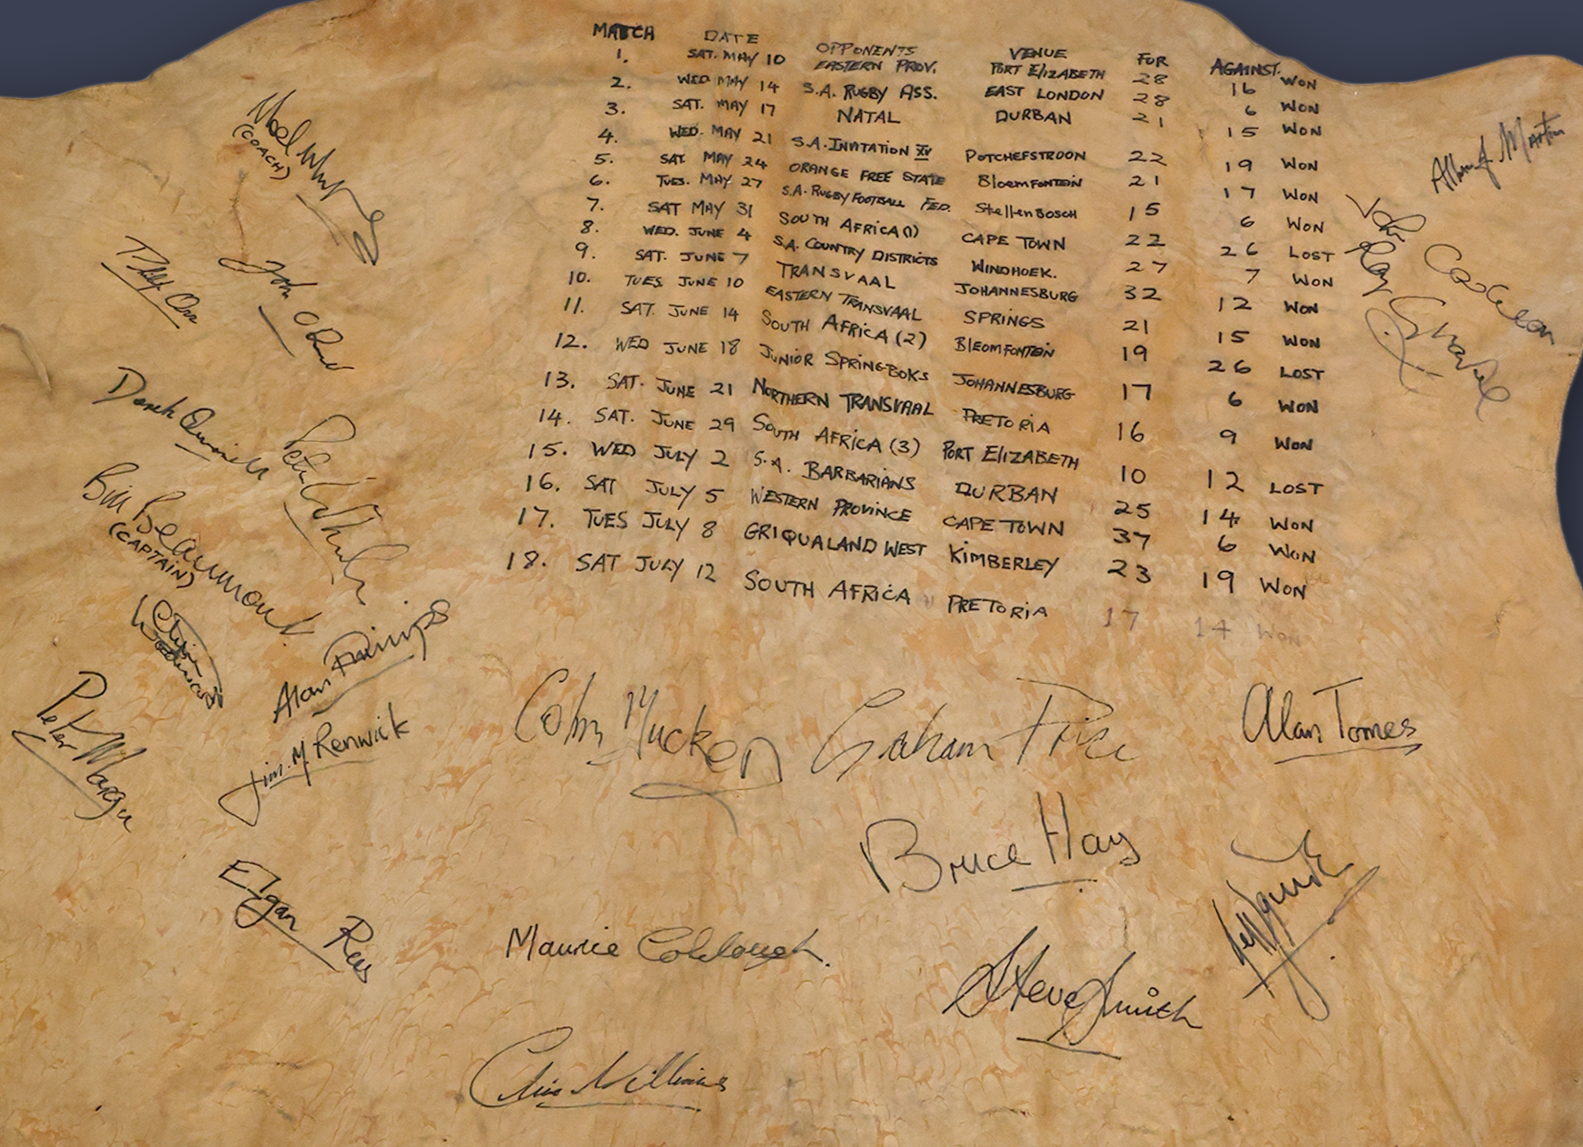 MATCH DATE OPPONENTS VENUE FOR AGAINST
1. SAT. MAY 10 EASTERN PROV. PORT ELIZABETH 28 16 WON
2. WED MAY 14 S.A. RUGBY ASS. EAST LONDON 28 6 WON
3. SAT. MAY 17 NATAL DURBAN 21 15 WON
4. WED. MAY 21 S.A. INVITATION XV POTCHEFSTROON 22 19 WON
5. SAT. MAY 24 ORANGE FREE STATE BLOEMFONTEIN 21 17 WON
6. TUES. MAY 27 S.A. RUGBY FOOTBALL FED. StellenBOSCH 15 6 WON
7. SAT MAY 31 SOUTH AFRICA (1) CAPE TOWN 22 26 LOST
8. WED. JUNE 4 S.A. COUNTRY DISTRICTS WINDHOEK. 27 7 WON
9. SAT. JUNE 7 TRANSVAAL JOHANNESBURG 32 12 WON
10. TUES JUNE 10 EASTERN TRANSVAAL SPRINGS 21 15 WON
11. SAT. JUNE 14 SOUTH AFRICA (2) BLEOMFONTEIN 19 26 LOST
12. WED JUNE 18 JUNIOR SPRINGBOKS JOHANNESBURG 17 6 WON
13. SAT. JUNE 21 NORTHERN TRANSVAAL PRETORIA 16 9 WON
14. SAT. JUNE 29 SOUTH AFRICA (3) PORT ELIZABETH 10 12 LOST
15. WED JULY 2 S.A. BARBARIANS DURBAN 25 14 WON
16. SAT JULY 5 WESTERN PROVINCE CAPE TOWN 37 6 WON
17. TUES JULY 8 GRIQUALAND WEST KIMBERLEY 23 19 WON
18. SAT JULY 12 SOUTH AFRICA PRETORIA 17 14 WON
Noel
(COACH)
Allan J. Martin
John
Ray Gravell
Derek Quinnell
Peter
Bill Beaumont
(CAPTAIN)
Alan
Jim. M Renwick
Peter Morgan
Colin
Graham Price
Alan Tomes
Bruce Hay
Elgan Rees
Maurice Colclough.
Steve Smith